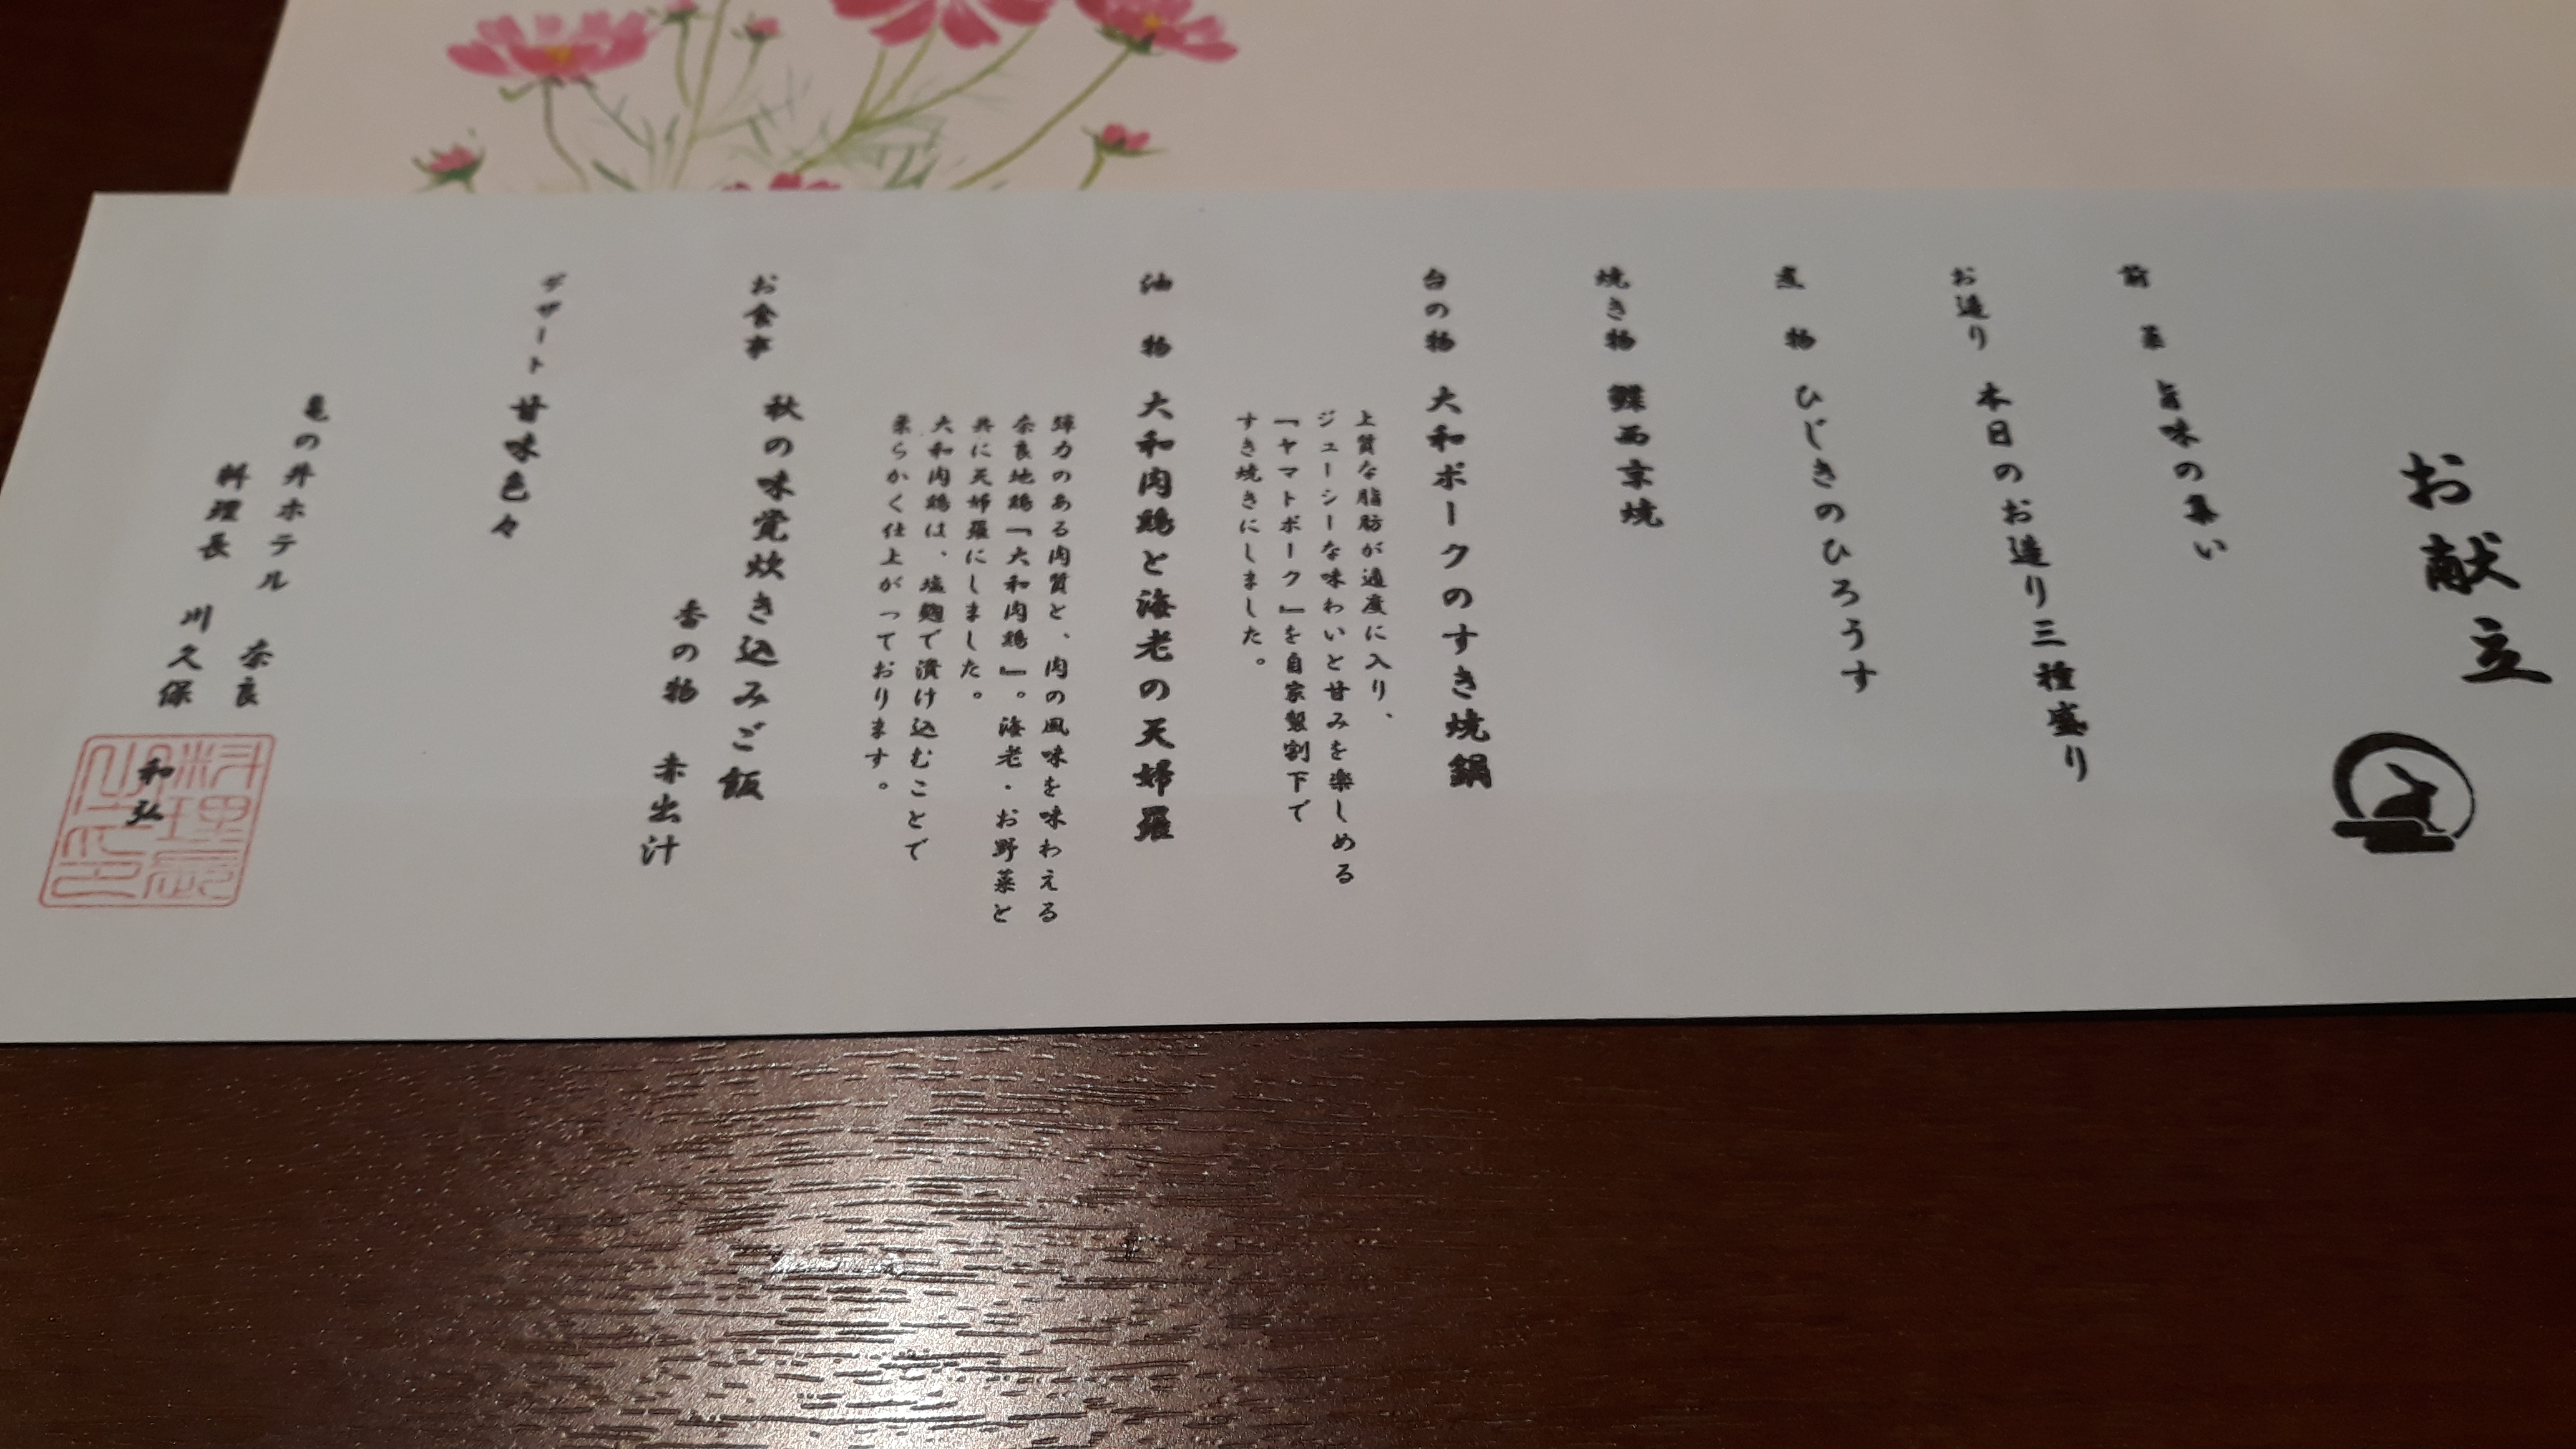 お献立
前菜 旨味の集い
お造り 本日のお造り三種盛り
煮物 ひじきのひろうす
焼き物 鰈西京焼
台の物 大和ポークのすき焼鍋
上質な脂肪が適度に入り、
ジューシーな味わいと甘みを楽しめる
「ヤマトポーク」を自家製割下で
すき焼きにしました。
油物 大和肉鶏と海老の天婦羅
弾力のある肉質と、肉の風味を味わえる
奈良地鶏「大和肉鶏」。海老・お野菜と
共に天婦羅にしました。
大和肉鶏は、塩麹で漬け込むことで
柔らかく仕上がっております。
お食事 秋の味覚炊き込みご飯
香の物 赤出汁
デザート 甘味色々
亀の井ホテル 奈良
料理長 川久保 和弘